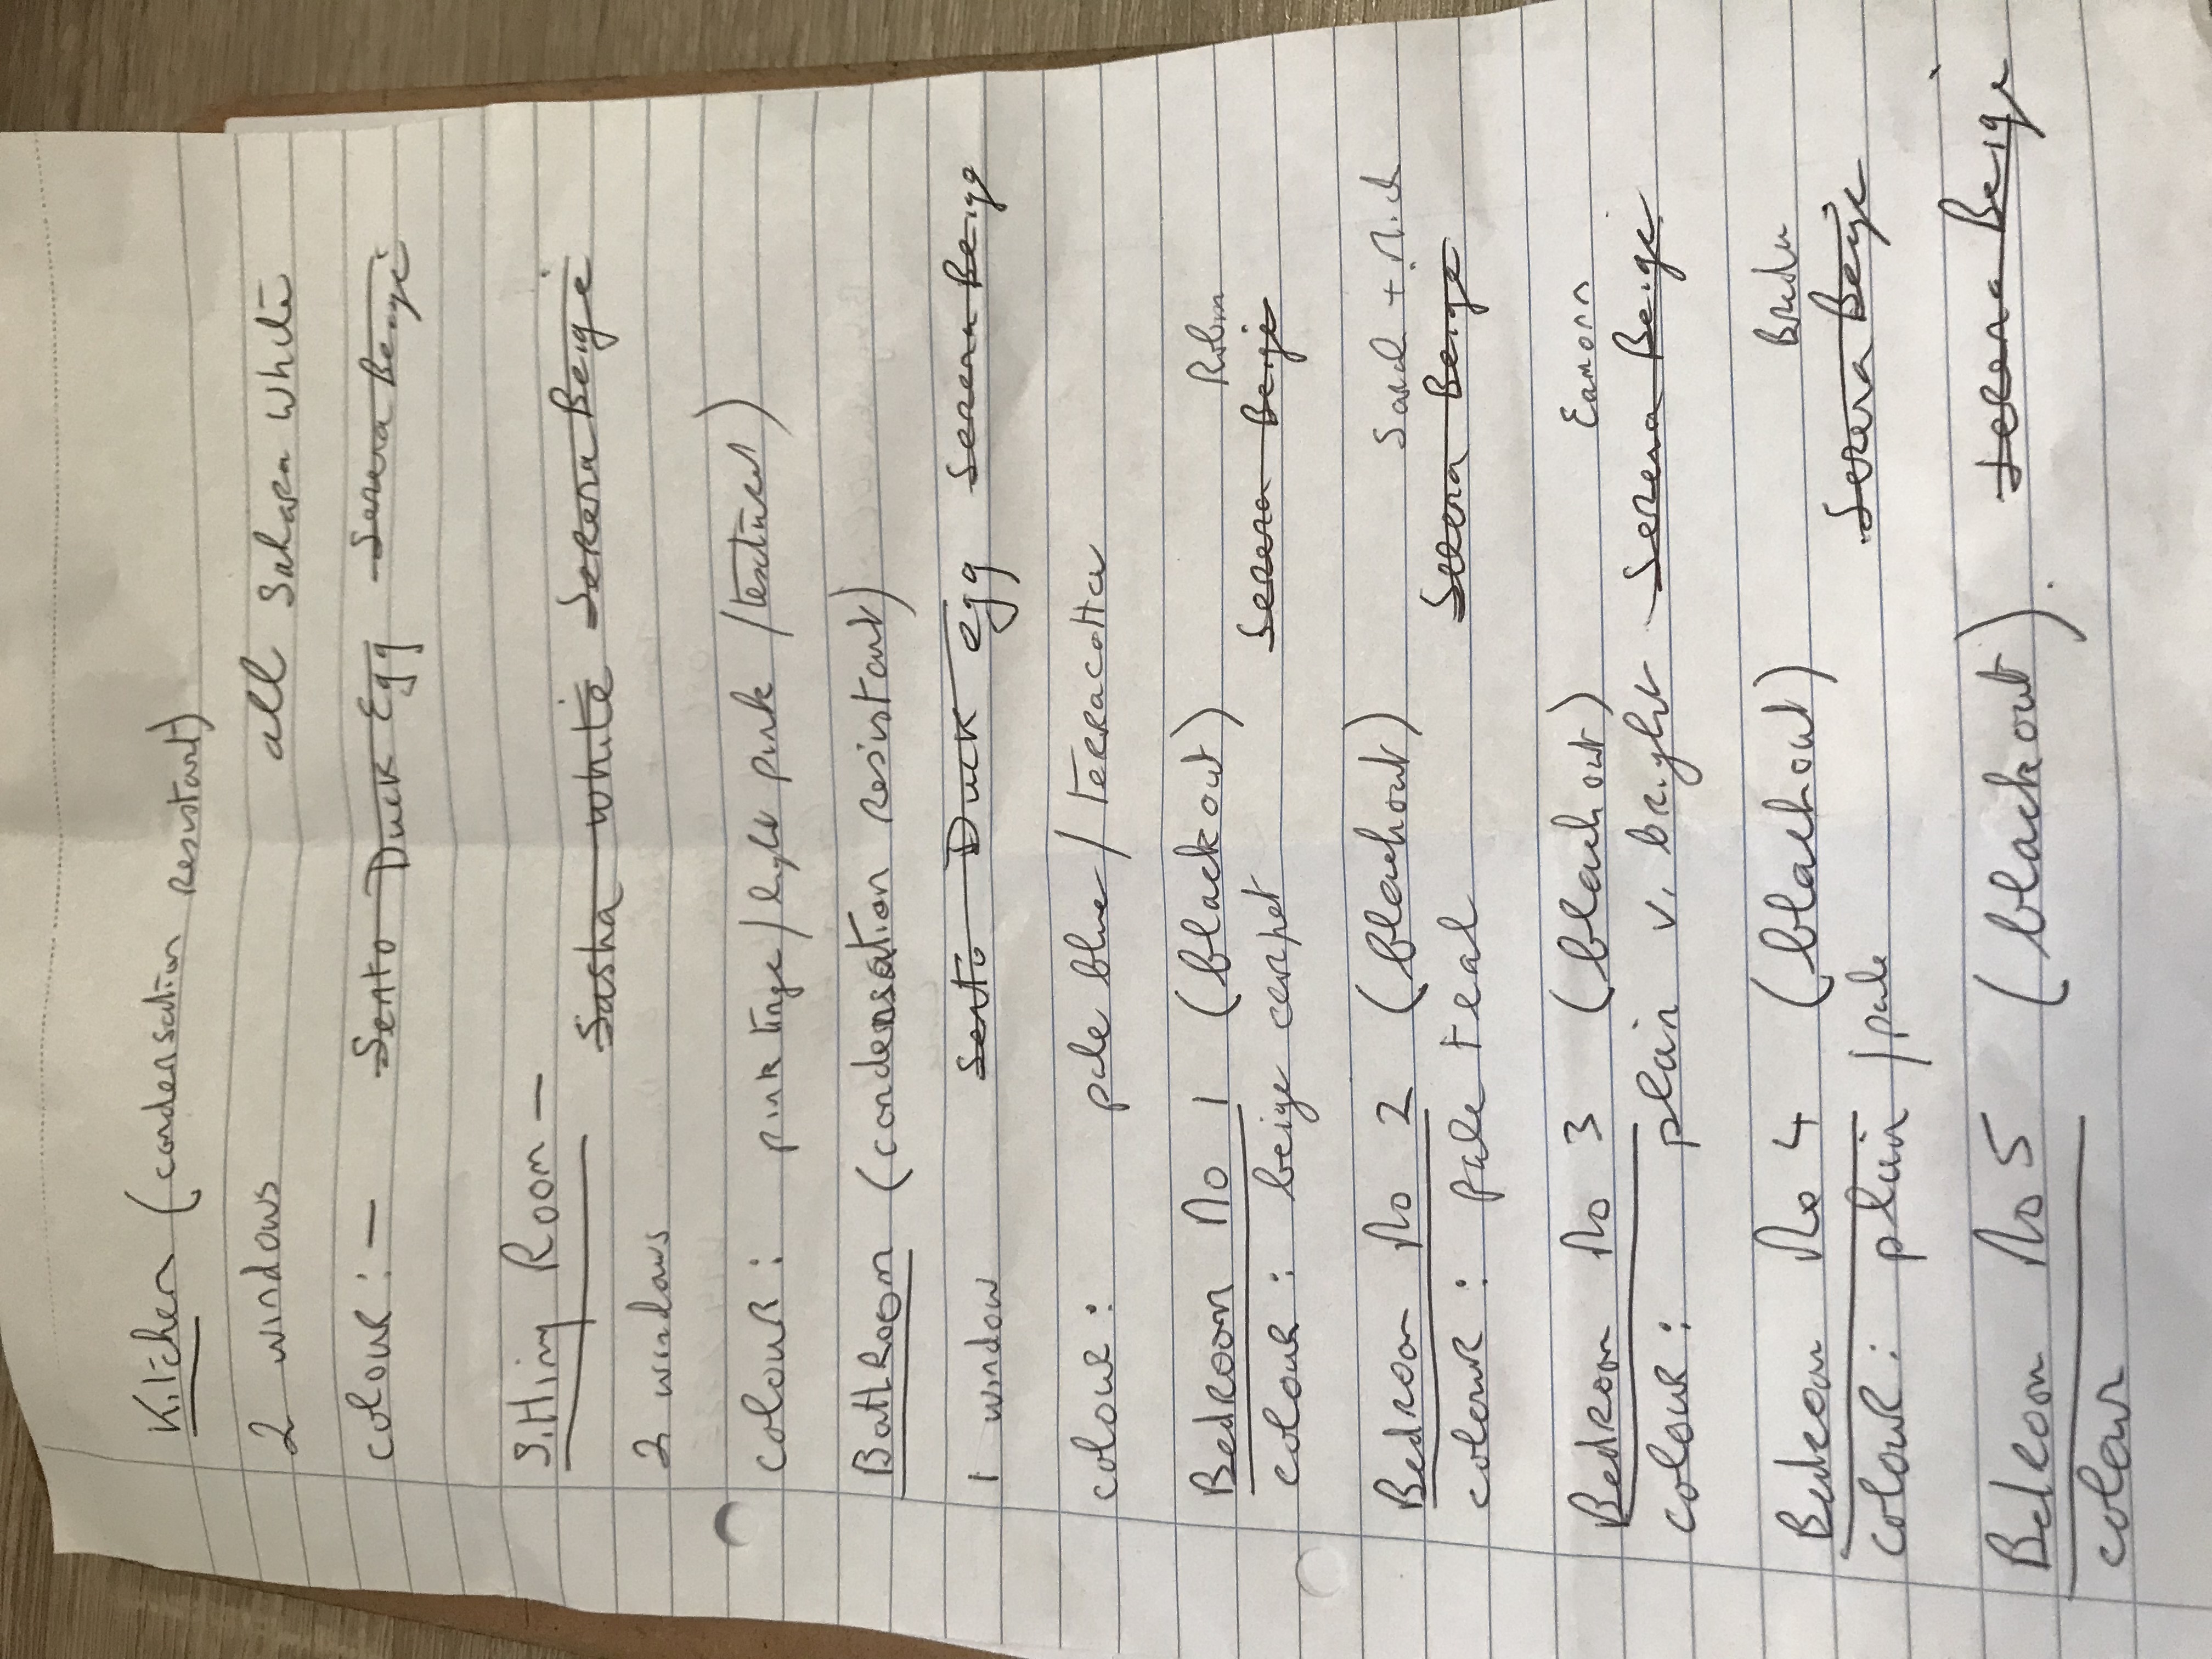 Kitchen (condensation resistant)
2 windows all Sahara white
colour :- Sento Duck Egg Serena Beige
Sitting Room -
Sasha white Serena Beige
2 windows
colour : pink tinge / light pink / textured)
Bathroom (condensation resistant)
1 window Sento Duck egg Serena Beige
colour : pale blue / terracotta
Bedroom No 1 (blackout) Robin
colour : beige carpet Serena Beige
Bedroom No 2 (blackout) + Nick
colour : pale teal Serena Beige
Bedroom No 3 (blackout) Eamonn
colour : plain v. bright Serena Beige
Bedroom No 4 (blackout)
colour : plain / pale Serena Beige
Bedroom No 5 (blackout). Serena Beige
colour